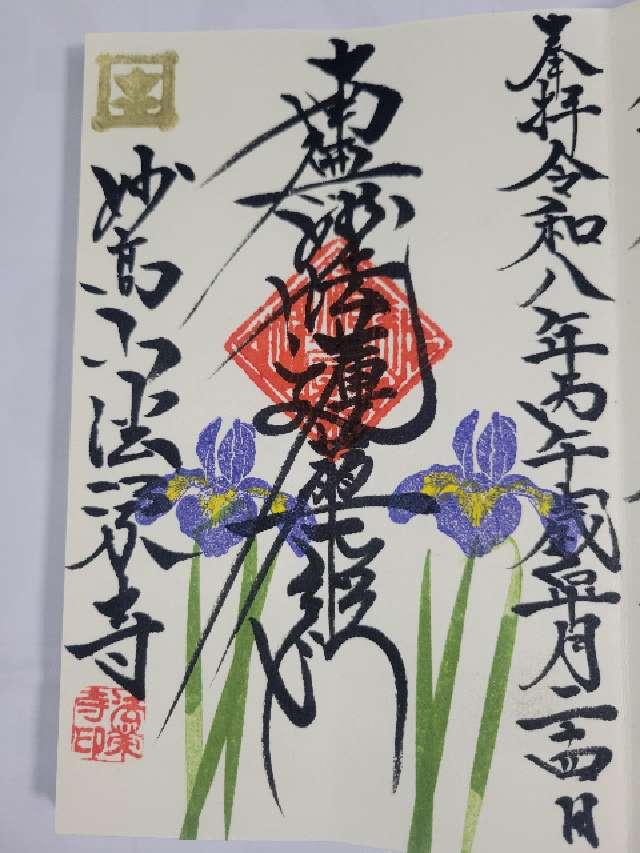 奉拝 令和八年丙午歳皐月二十四日
南無妙法蓮華経
妙高山法 寺